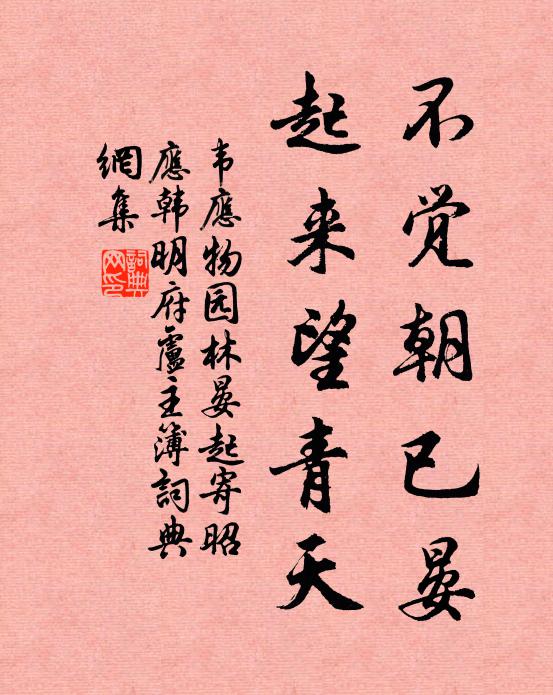 不觉朝已晏
起来望青天
韦應物园林晏起寄昭
應韩明府盧主簿詞典
網集
詞典網印